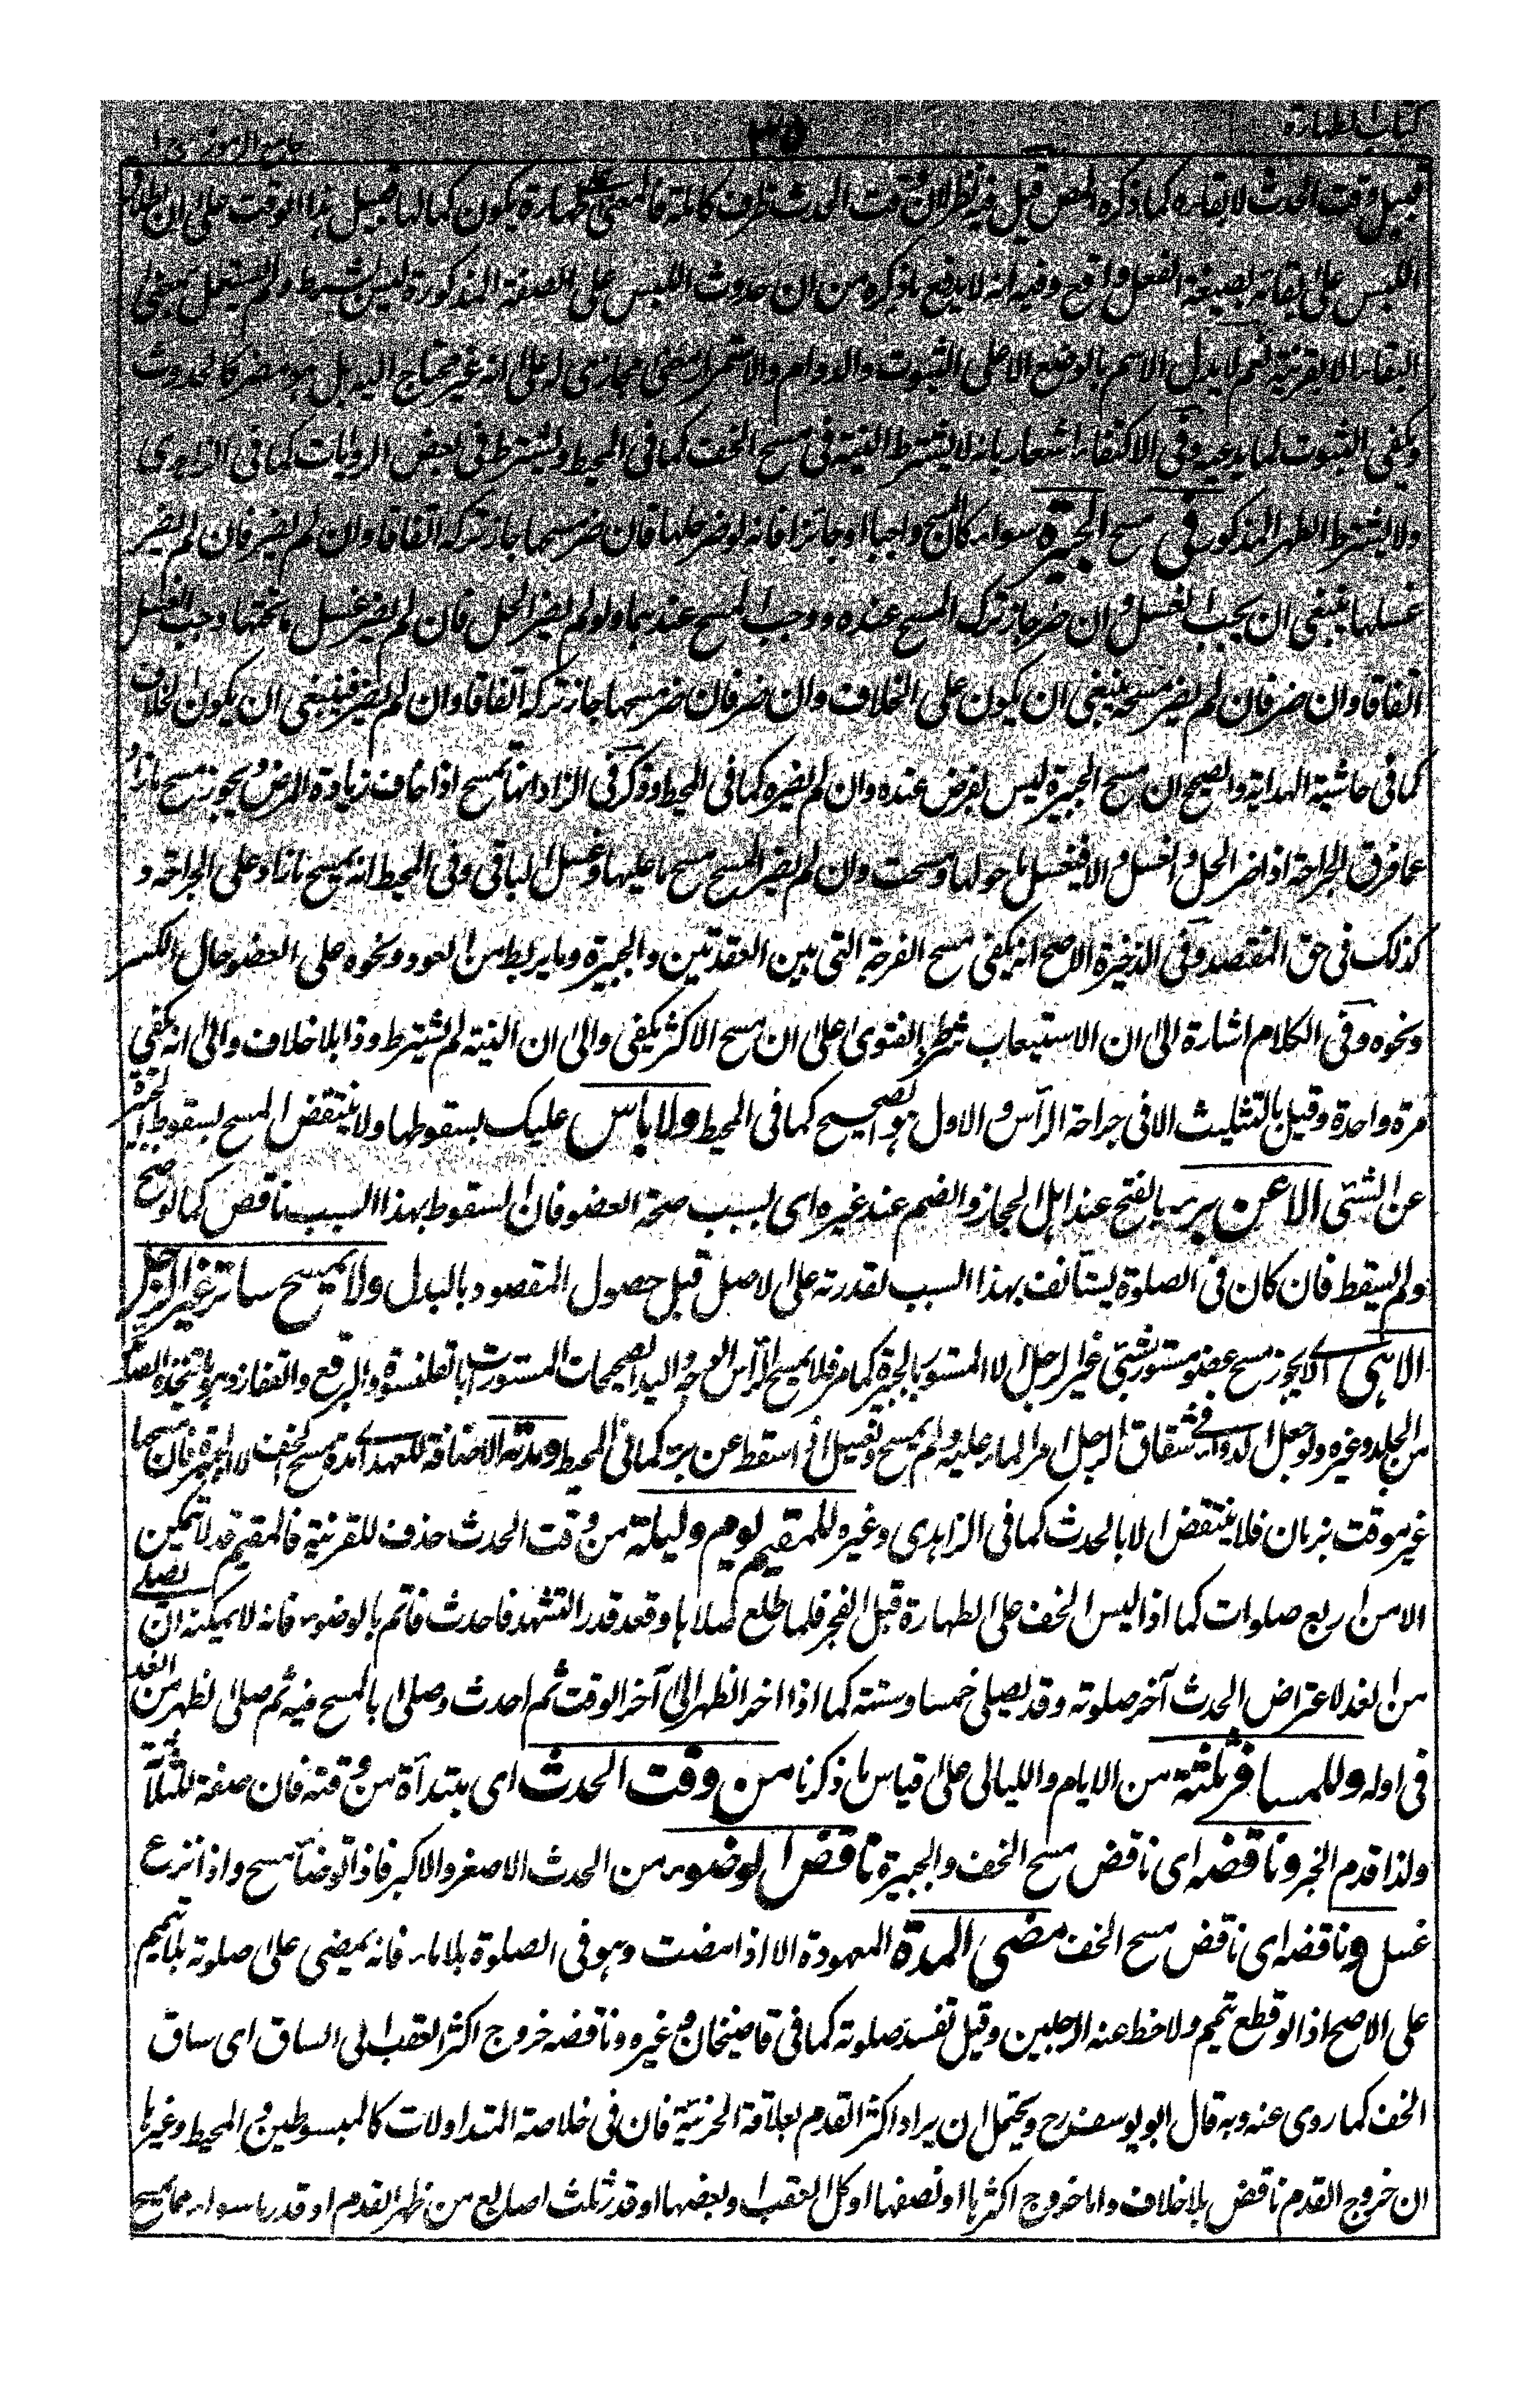 كتاب الطهارة ٣٥ جامع الرموز ج ١
قبيل وقت الحدث لا بقاءه كما ذكره المص قيل فيه نظر لان وقت الحدث ظرف كاملة فالمعنى على طهارة يكون كمالها قبيل هذا الوقت على ان
اللبس على بقائه بصيغة الفعل واقع وفيه انه لا يدفع ما ذكره من ان حدوث اللبس على الصفة المذكورة ليس بشرط ولم يستعمل بمعنى
البقاء الا لقرينة نعم لا يدل الاسم بالوضع الا على الثبوت والدوام والاستمرار معنى مجازى له على انه غير محتاج اليه بل هو مضر كالحدوث
ويكفى الثبوت لما يدعيه وفى الاكتفاء اشعار بانه لا يشترط النية فى مسح الخف كما فى المحيط ويشترط فى بعض الروايات كما فى الزاهدى
ولا يشترط الطهر المذكور فى مسح الجبيرة سواء كان المسح واجبا او جائزا فانه لو ضر حلها فان ضر مسحها جاز تركه اتفاقا وان لم يضر فان لم يضر
غسلها ينبغى ان يجب الغسل وان ضر جاز ترك المسح عنده ووجب المسح عندهما ولو لم يضر الحل فان لم يضر غسل ما تحتها وجب الغسل
اتفاقا وان ضر فان لم يضر مسحه ينبغى ان يكون على الخلاف وان ضر فان ضر مسحها جاز تركه اتفاقا وان لم يضر فينبغى ان يكون الخلاف
كما فى حاشية الهداية والصحيح ان مسح الجبيرة ليس بفرض عنده وان لم يضره كما فى المحيط وذكر فى الزاد انها تمسح اذا خاف زيادة المرض ويجوز مسح ما زاد
عما فرق الجراحة اذا ضر الحل والغسل والا فيغسل ما حولها ومسحت وان لم يضر المسح مسح ما عليها وغسل الباقى وفى المحيط انه يمسح ما زاد على الجراحة و
كذلك فى حق المفتصد وفى الذخيرة الاصح انه يكفى مسح الفرجة التى بين العقدتين والجبيرة وما يربط من العود ونحوه على العضو حال الكسر
ونحوه وفى الكلام اشارة الى ان الاستيعاب شرط والفتوى على ان مسح الاكثر يكفى والى ان النية لم تشترط وذا بلا خلاف والى انه يكفى
مرة واحدة وقيل بالتثليث الا فى جراحة الرأس والاول هو الصحيح كما فى المحيط ولا باس عليك بسقوطها ولا ينتقض المسح بسقوط الجبيرة
عن الشئ الا عن برء بالفتح عند اهل الحجاز والضم عند غيره اى بسبب صحة العضو فان السقوط بهذا السبب ناقض كما لو صح
ولم يسقط فان كان فى الصلوة يستأنف بهذا السبب لقدرته على الاصل قبل حصول المقصود بالبدل ولا يمسح ساتر غير الرجل
الا هى اى لا يجوز مسح عضو مستور بشئ غير الرجل الا المستور بالجبيرة كما مر فلا يمسح الرأس والوجه واليد الصحيحات المستورات بالقلنسوة والبرقع والقفاز وهو ما يتخذه الصياد
من الجلد وغيره ولو جعل الدواء فى شقاق الرجل امر الماء عليه ولم يمسح وتغسيل ان اسقط عن برء كما فى المحيط ومدته الاضافة للعهد اى مدة مسح الخف لا الجبيرة فان مسحها
غير موقت بزمان فلا ينتقض الا بالحدث كما فى الزاهدى وغيره للمقيم يوم وليلة من وقت الحدث حذف للقرينة فالمقيم قد لا يتمكن
الا من اربع صلوات كما اذا لبس الخف على الطهارة قبل الفجر فلما طلع صلاها وقعد قدر التشهد فاحدث فاتم بالوضوء فانه لا يمكنه ان يصلى
من الغد لاعتراض الحدث آخر صلوته وقد يصلى خمسا وستة كما اذا اخر الظهر الى آخر الوقت ثم احدث وصلى بالمسح فيه ثم صلى الظهر من الغد
فى اوله وللمسافر ثلثة من الايام والليالى على قياس ما ذكرنا من وقت الحدث اى مبتدأة من وقته فان صفة للثلاثة
ولذا قدم الخبر وناقضه اى ناقض مسح الخف والجبيرة ناقض الوضوء من الحدث الاصغر والاكبر فاذا توضأ مسح واذا نزع
غسل وناقضه اى ناقض مسح الخف مضى المدة المعهودة الا اذا مضت وهو فى الصلوة بلا ماء فانه يمضى على صلوته بلا تيمم
على الاصح اذا لو قطع تيمم ولا حظ عنه الرجلين وقيل تفسد صلوته كما فى قاضيخان وغيره وناقضه خروج اكثر العقب الى الساق اى ساق
الخف كما روى عنه وبه قال ابو يوسف رح ويحتمل ان يراد اكثر القدم بعلاقة الجزئية فان فى خلاصة المتداولات كالمبسوطين والمحيط وغيرها
ان خروج القدم ناقض بلا خلاف واما خروج اكثرها او نصفها او كل العقب او بعضها او قدر ثلث اصابع من ظهر القدم او قدرها سواء مما يمسح